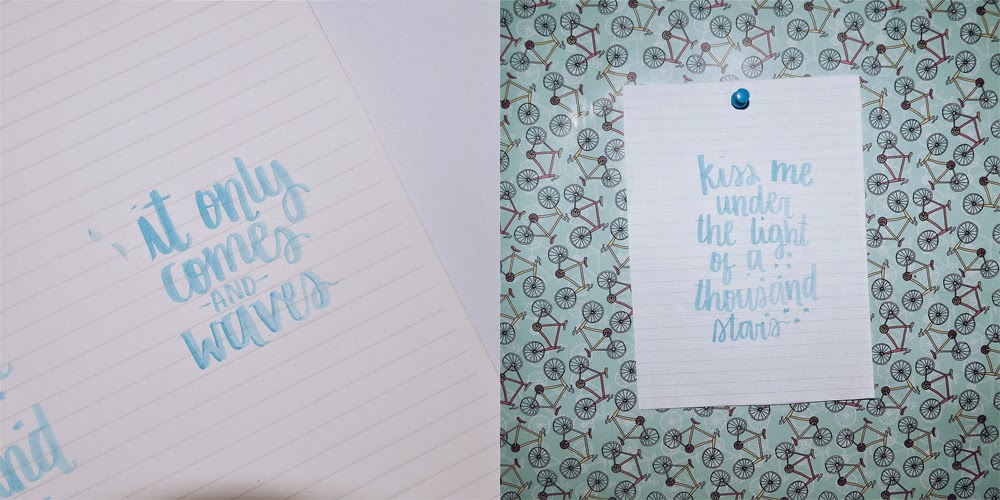 it only
comes
-AND-
waves
nd
kiss me
under
the light
of a
thousand
stars